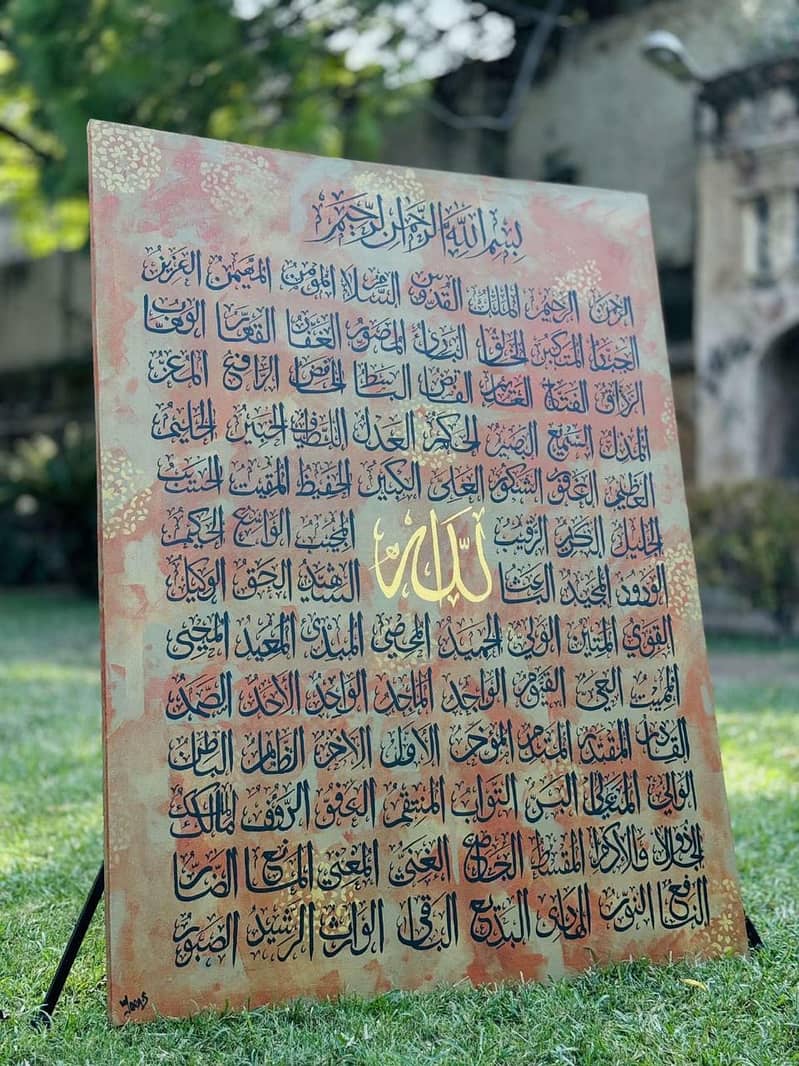 بِسْمِ اللهِ الرَّحْمٰنِ الرَّحِيْمِ
الرحمن الرحيم الملك القدوس السلام المؤمن المهيمن العزيز
الجبار المتكبر الخالق البارئ المصور الغفار القهار الوهاب
الرزاق الفتاح العليم القابض الباسط الخافض الرافع المعز
المذل السميع البصير الحكم العدل اللطيف الخبير الحليم
العظيم الغفور الشكور العلي الكبير الحفيظ المقيت الحسيب
الجليل الكريم الرقيب الله المجيب الواسع الحكيم
الودود المجيد الباعث الشهيد الحق الوكيل
القوي المتين الولي الحميد المحصي المبدئ المعيد المحيي
المميت الحي القيوم الواجد الماجد الواحد الاحد الصمد
القادر المقتدر المقدم المؤخر الاول الاخر الظاهر الباطن
الوالي المتعالي البر التواب المنتقم العفو الرؤف مالك الملك
ذوالجلال والاكرام المقسط الجامع الغني المغني المانع الضار
النافع النور الهادي البديع الباقي الوارث الرشيد الصبور